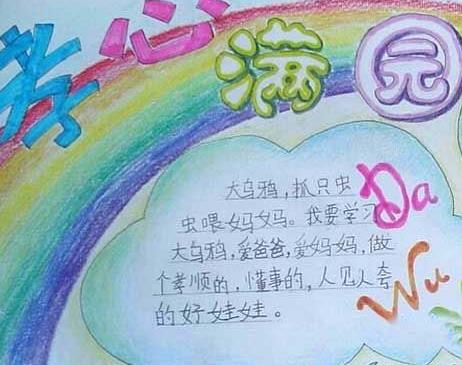 孝心满园
大乌鸦，抓只虫
虫喂妈妈。我要学习
大乌鸦，爱爸爸，爱妈妈，做
个孝顺的，懂事的，人见人夸
的好娃娃。
Da
Wu